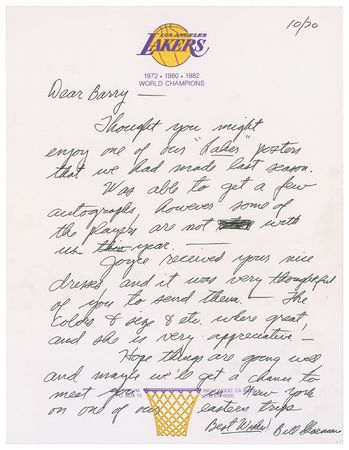 10/20
LOS ANGELES
LAKERS
1972 • 1980 • 1982
WORLD CHAMPIONS
Dear Barry —
Thought you might
enjoy one of our "Laker" posters
that we had made last season.
Was able to get a few
autographs, however some of
the players are not with
us this year. —
Joyce received your nice
dresses, and it was very thoughtful
of you to send them. — The
colors & size & etc. where great,
and she is very appreciative —
Hope things are going well
and maybe we'll get a chance to
meet you New York
on one of our eastern trips
Best Wishes! Bill Sharman